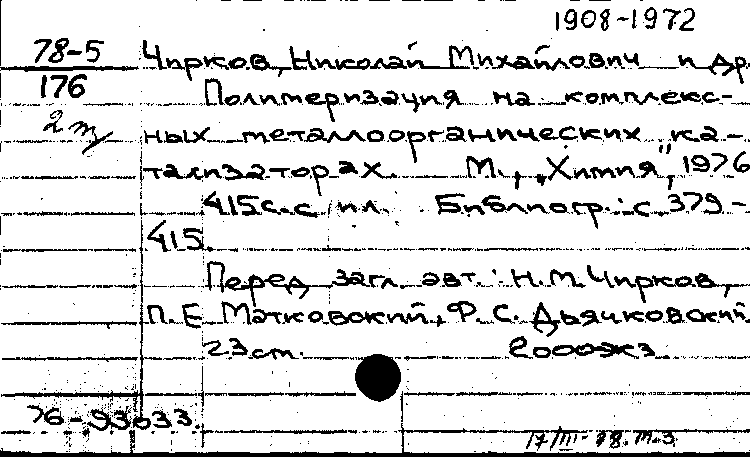 1908-1972
78-5 Чирков, Николай Михайлович и др.
176 Полимеризация на комплекс-
2 м/ ных металлоорганических ка-
тализаторах. М., „Химия", 1976
415с. с ил. Библиогр.: с. 379-
415.
Перед загл. авт.: Н.М. Чирков,
П. Е. Матковский, Ф. С. Дьячковский
23 см. 2000экз.
76-93033.
17/III-78. М.З.